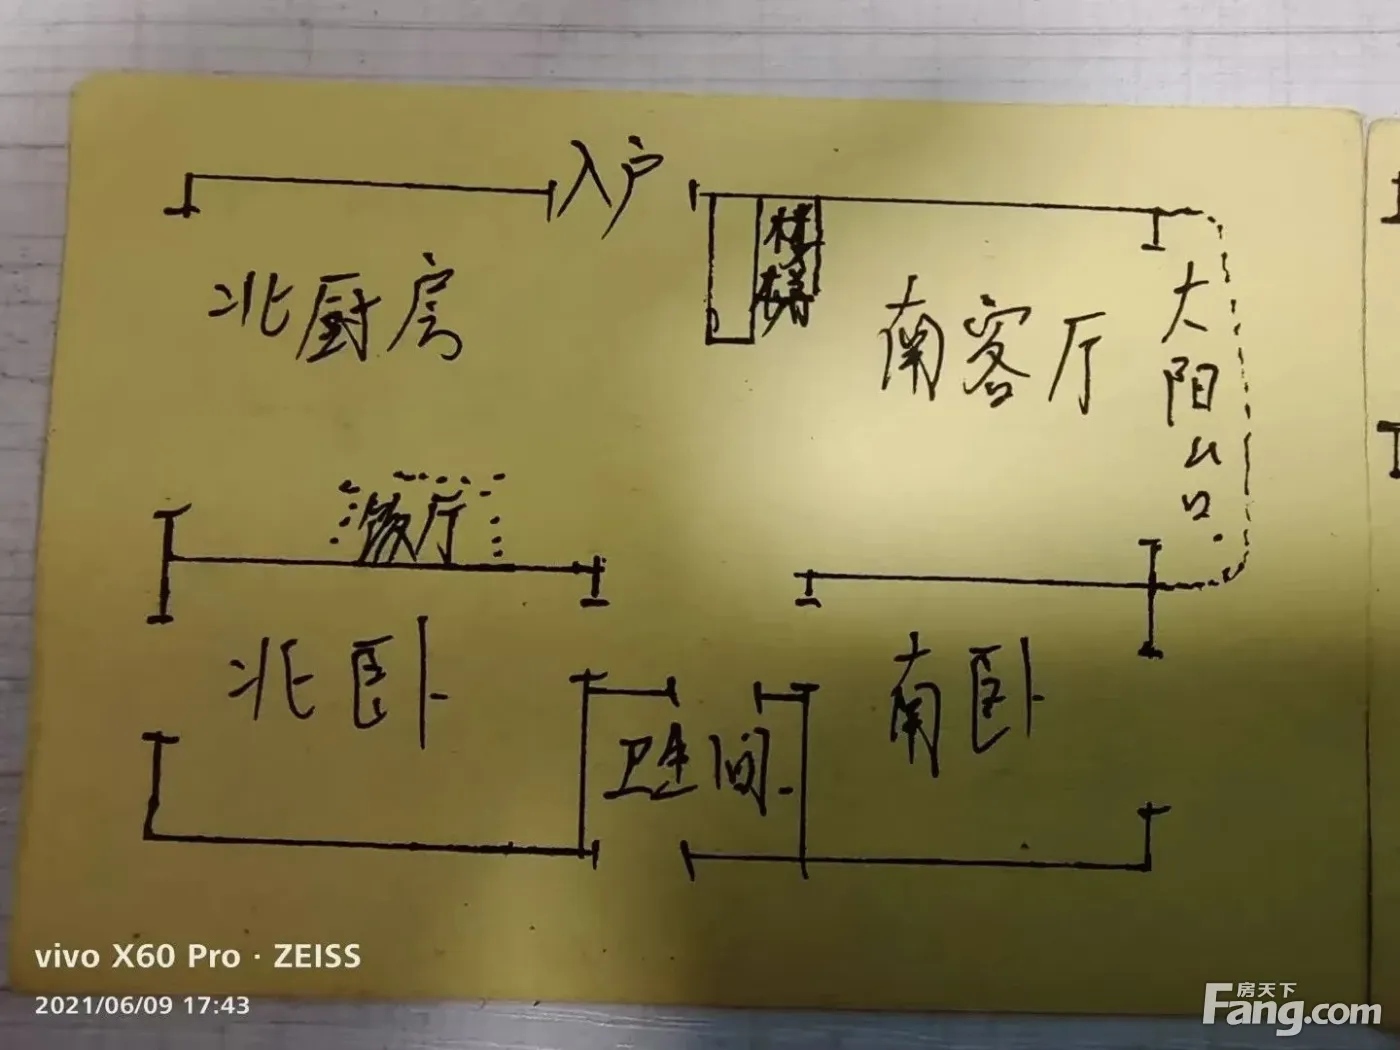 入户
楼梯
北厨房
南客厅
大阳台
餐厅
北卧
南卧
卫生间
vivo X60 Pro · ZEISS
2021/06/09 17:43
房天下
Fang.com